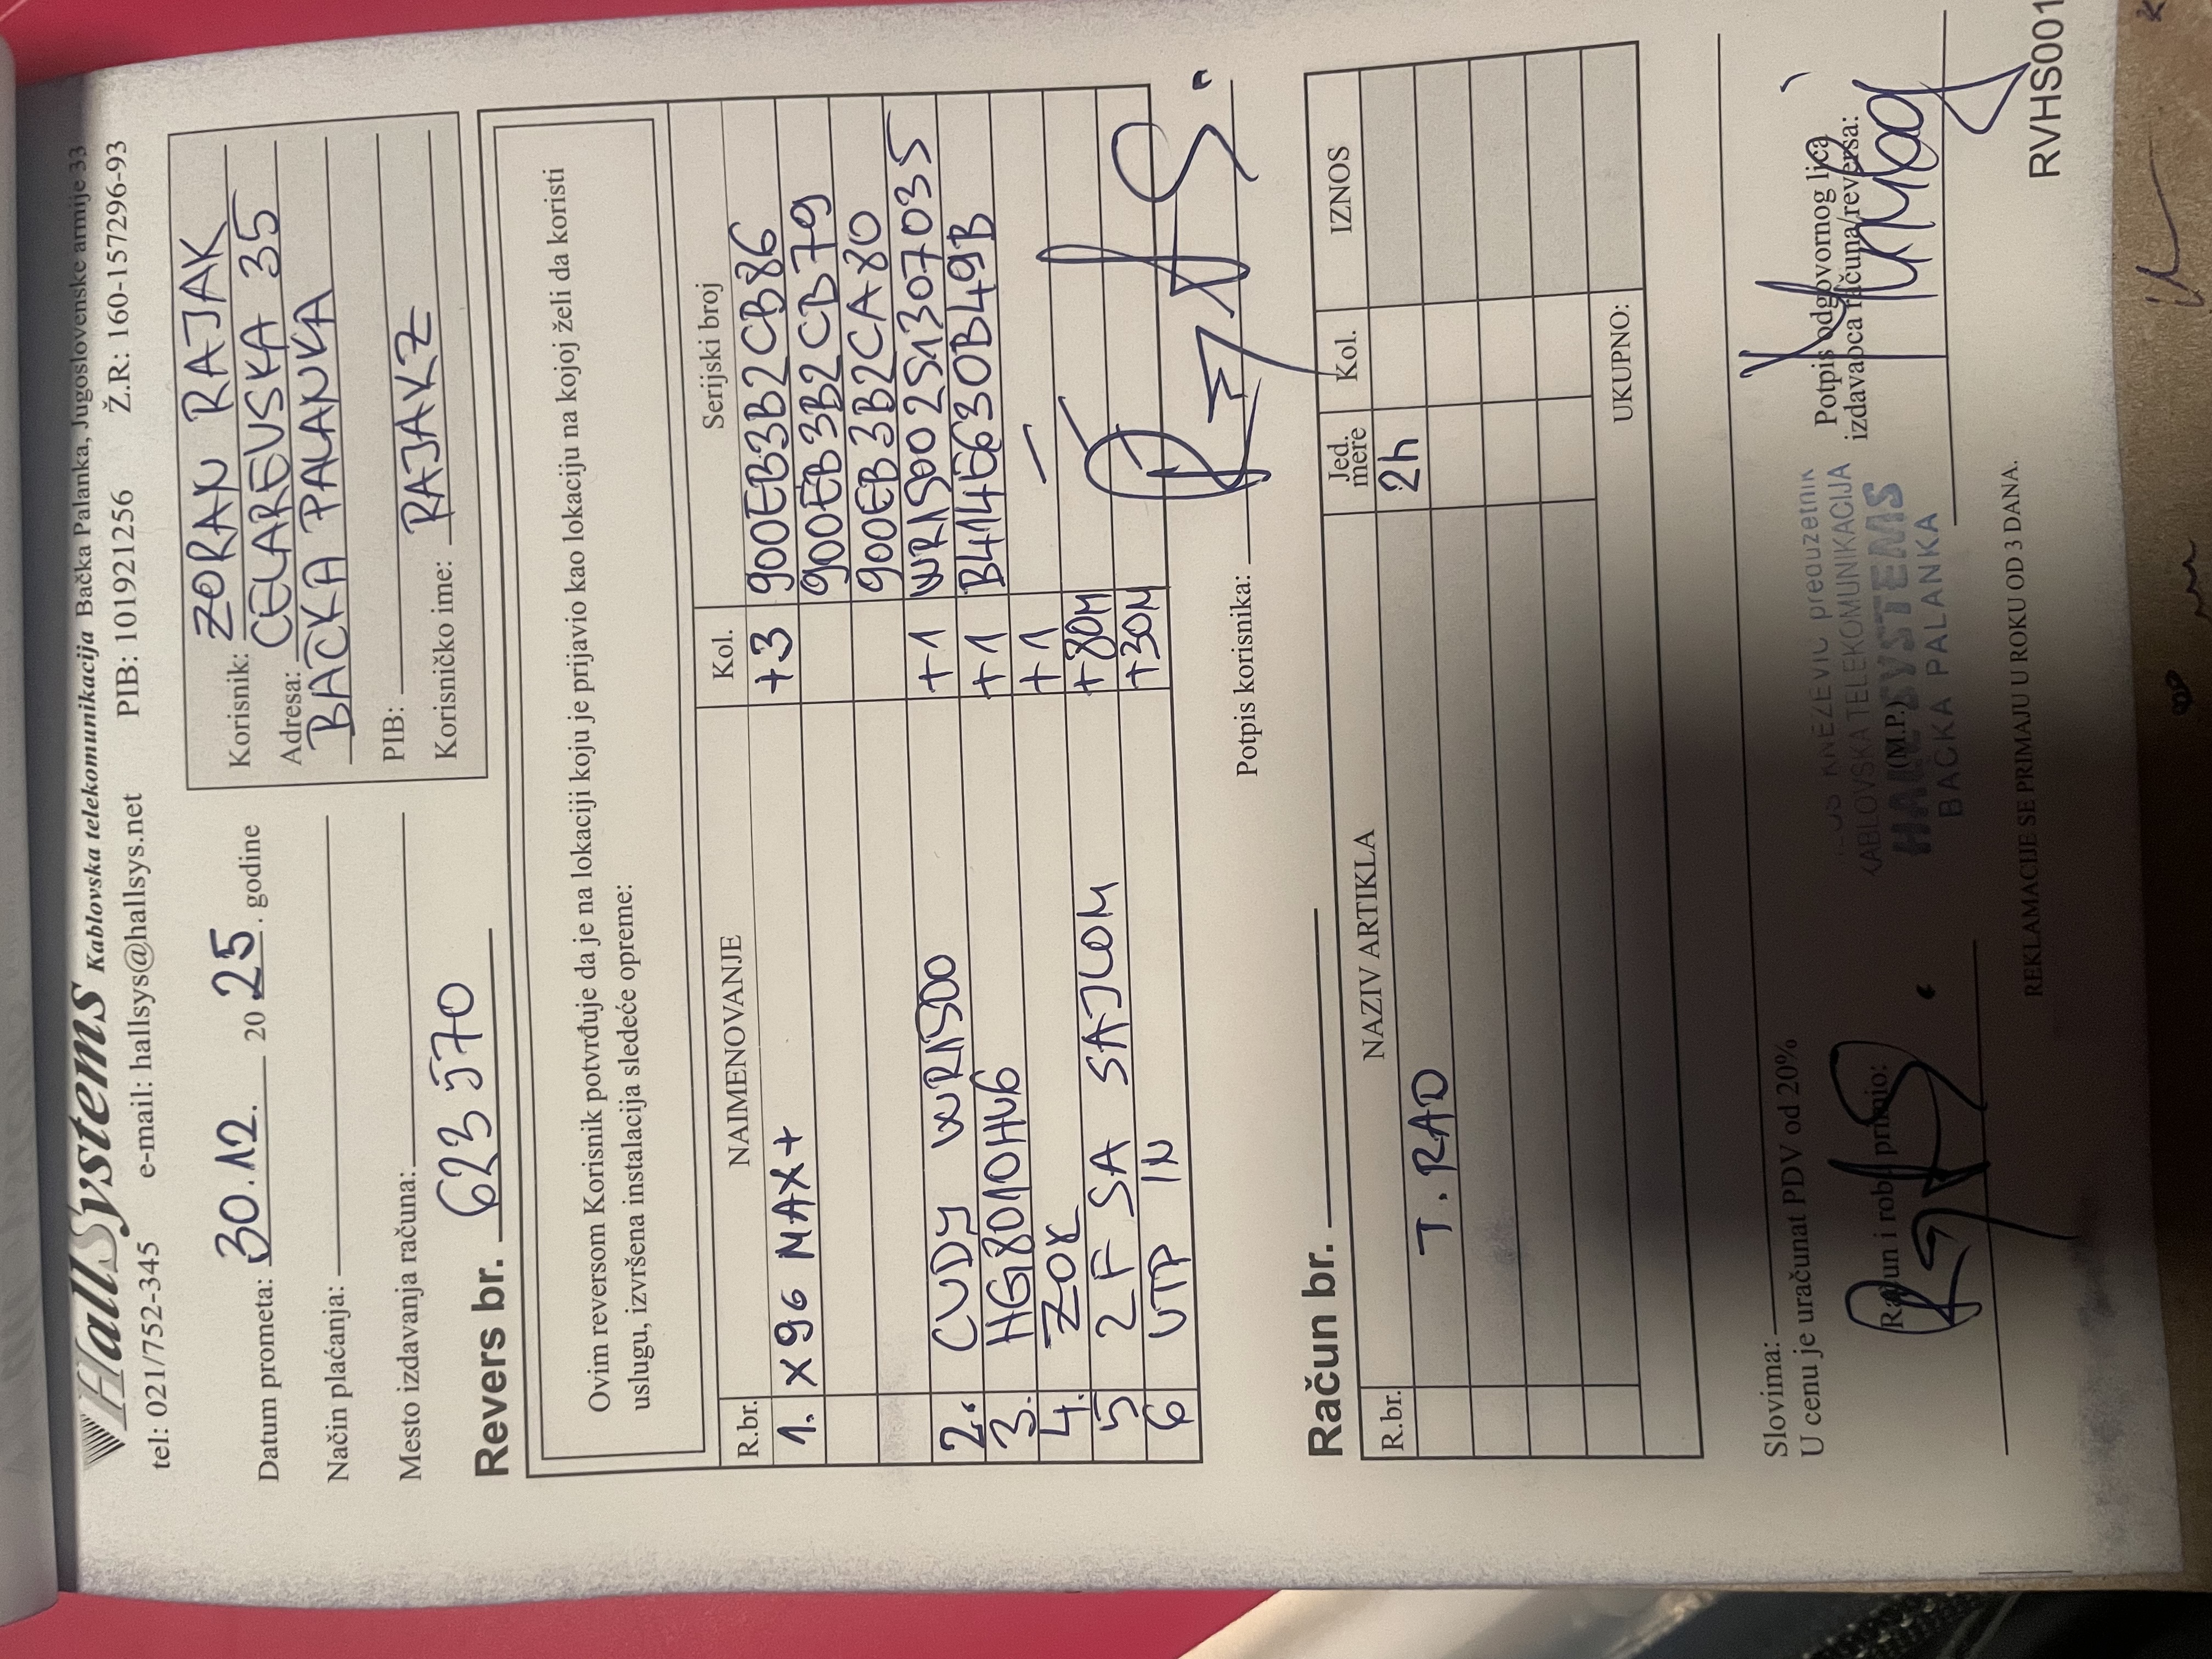 HallSystems Kablovska telekomunikacija Bačka Palanka, Jugoslovenske armije 33
tel: 021/752-345 e-mail: hallsys@hallsys.net PIB: 101921256 Ž.R: 160-157296-93
Datum prometa: 30.12. 2025. godine
Način plaćanja:
Mesto izdavanja računa:
Korisnik: ZORAN RAJAK
Adresa: CELAREVSKA 35
BACKA PALANKA
PIB:
Korisničko ime: RAJAKZ
Revers br. 623570
Ovim reversom Korisnik potvrđuje da je na lokaciji koju je prijavio kao lokaciju na kojoj želi da koristi
uslugu, izvršena instalacija sledeće opreme:
R.br. NAIMENOVANJE Kol. Serijski broj
1. X96 MAX+ +3 900EB3B2CB86
900EB3B2CB79
900EB3B2CA80
2. CUDY WR1500 +1 WR15002S1307035
3. HG8010HV6 +1 B414E630B49B
4. ZOK +1 —
5 2F SA SAJLOM +80M —
6 UTP IN +30M
Potpis korisnika:
Račun br.
R.br. NAZIV ARTIKLA Jed. mere Kol. IZNOS
T. RAD 2h
UKUPNO:
Slovima:
U cenu je uračunat PDV od 20%
Račun i robu primio:
(M.P.)
KNEŽEVIĆ preduzetnik
KABLOVSKA TELEKOMUNIKACIJA
HALL SYSTEMS
BACKA PALANKA
Potpis odgovornog lica
izdavaoca računa/reversa:
REKLAMACIJE SE PRIMAJU U ROKU OD 3 DANA.
RVHS001